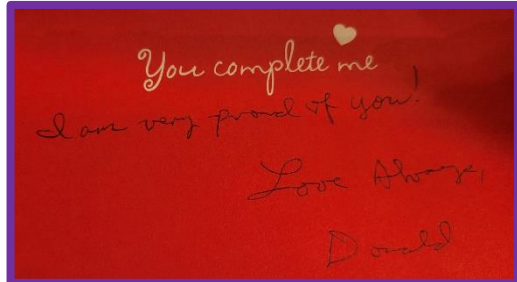 You complete me
I am very proud of you!
Love Always,
Donald